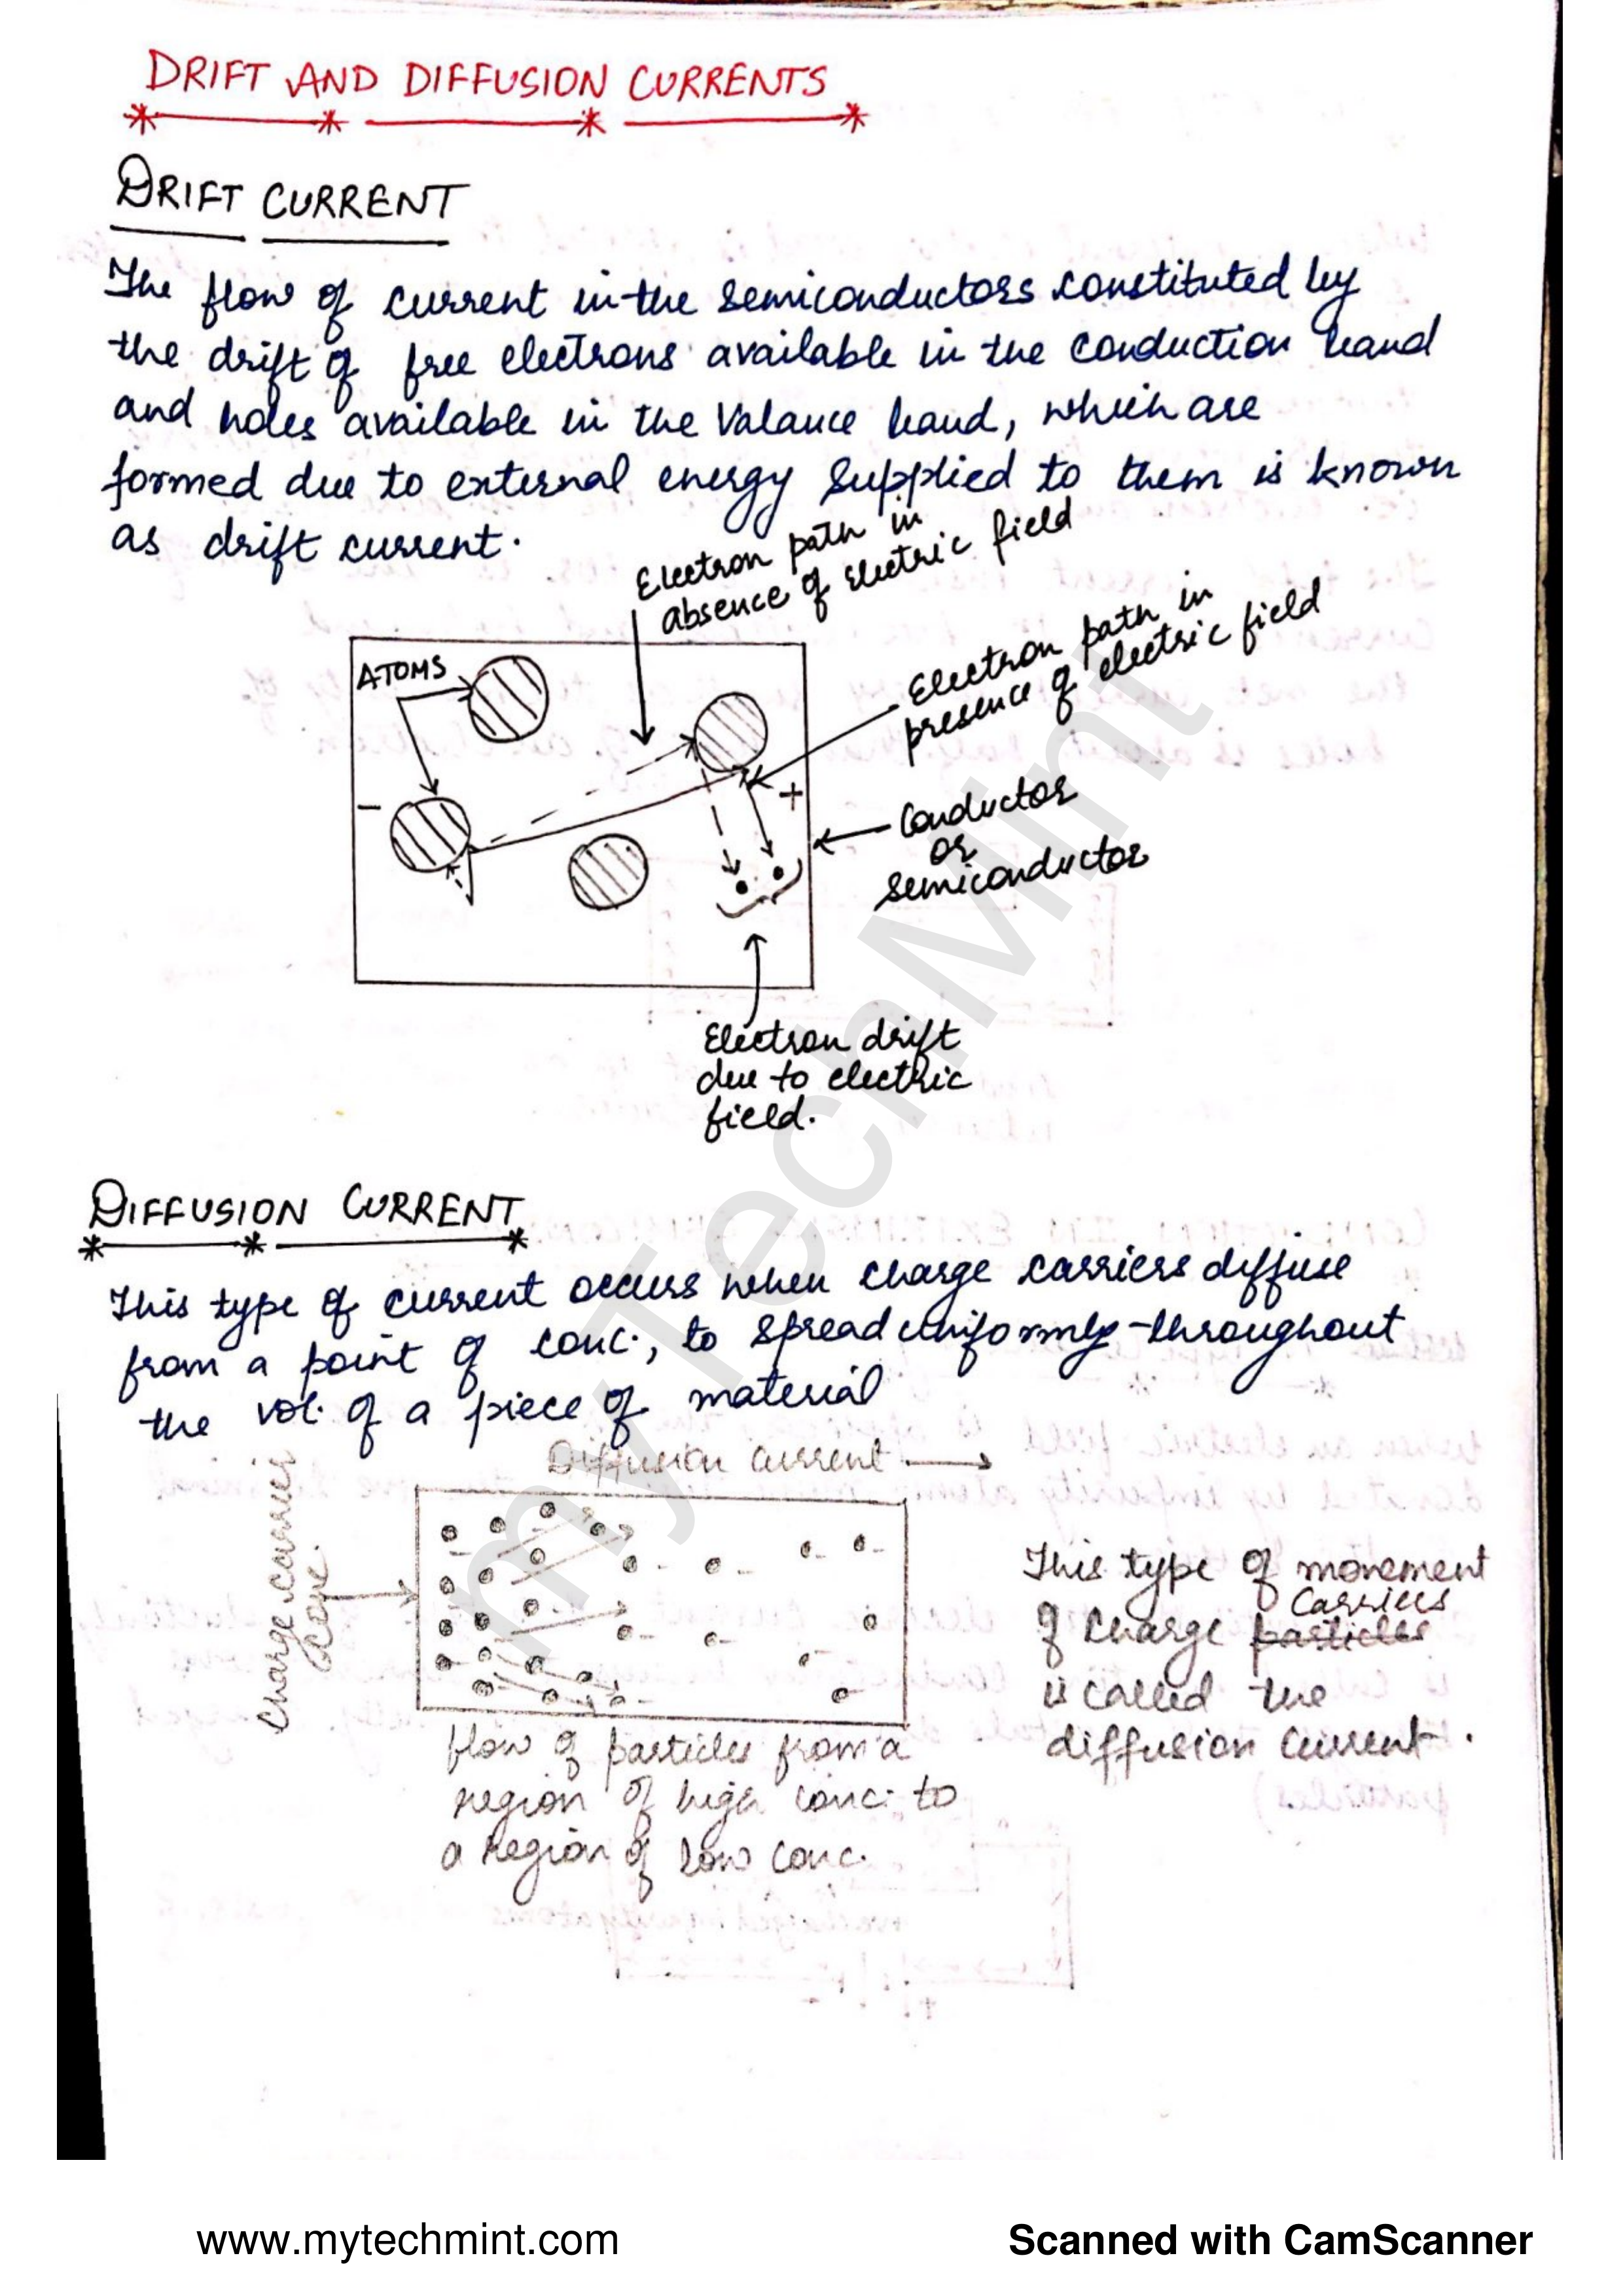 DRIFT AND DIFFUSION CURRENTS
DRIFT CURRENT
The flow of current in the semiconductors constituted by
the drift of free electrons available in the conduction band
and holes available in the Valance band, which are
formed due to external energy supplied to them is known
as drift current.
Electron path in
absence of electric field
Electron path in
presence of electric field
ATOMS
-
+
Conductor
or
semiconductor
Electron drift
due to electric
field.
DIFFUSION CURRENT
This type of current occurs when charge carriers diffuse
from a point of conc., to spread uniformly throughout
the vol. of a piece of material
Diffusion current
Charge carrier
flow of particles from a
region of high conc. to
a region of low conc.
This type of movement
carriers
of charge particles
is called the
diffusion current.
myTechMint
www.mytechmint.com
Scanned with CamScanner